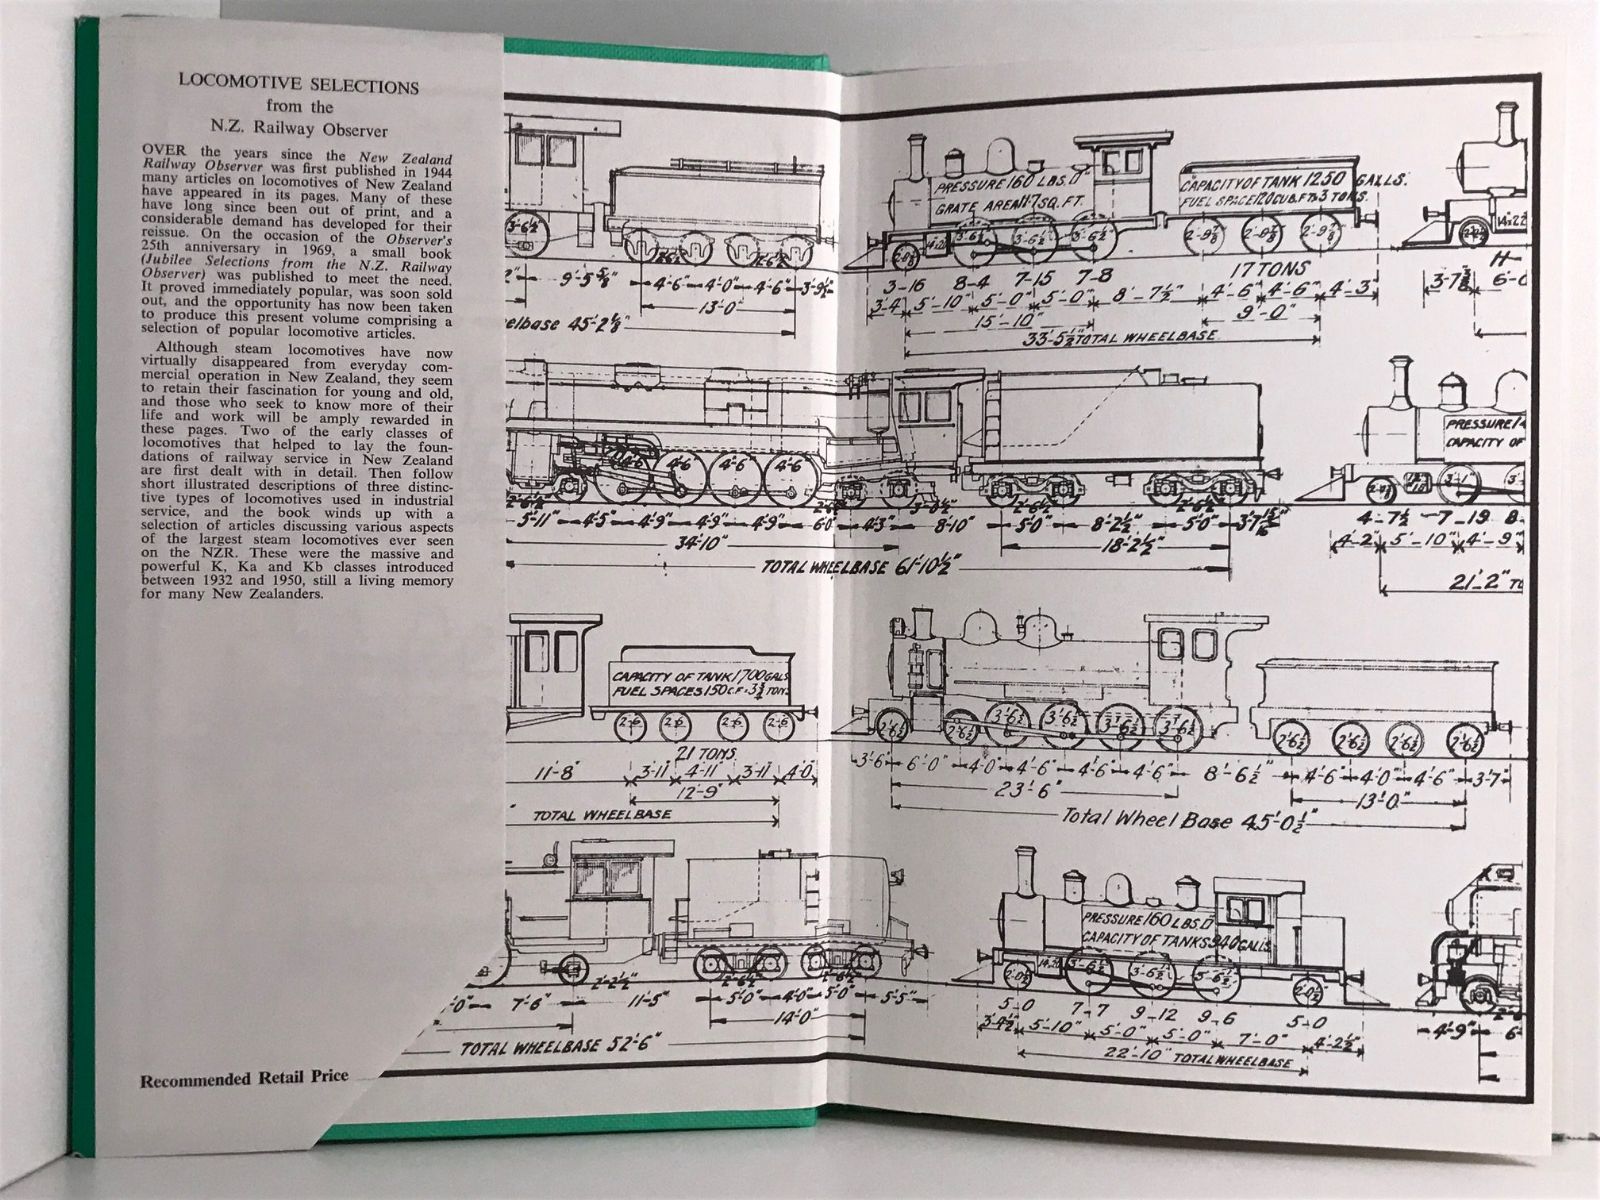 LOCOMOTIVE SELECTIONS
from the
N.Z. Railway Observer
OVER the years since the New Zealand
Railway Observer was first published in 1944
many articles on locomotives of New Zealand
have appeared in its pages. Many of these
have long since been out of print, and a
considerable demand has developed for their
reissue. On the occasion of the Observer's
25th anniversary in 1969, a small book
(Jubilee Selections from the N.Z. Railway
Observer) was published to meet the need.
It proved immediately popular, was soon sold
out, and the opportunity has now been taken
to produce this present volume comprising a
selection of popular locomotive articles.
Although steam locomotives have now
virtually disappeared from everyday com-
mercial operation in New Zealand, they seem
to retain their fascination for young and old,
and those who seek to know more of their
life and work will be amply rewarded in
these pages. Two of the early classes of
locomotives that helped to lay the foun-
dations of railway service in New Zealand
are first dealt with in detail. Then follow
short illustrated descriptions of three distinc-
tive types of locomotives used in industrial
service, and the book winds up with a
selection of articles discussing various aspects
of the largest steam locomotives ever seen
on the NZR. These were the massive and
powerful K, Ka and Kb classes introduced
between 1932 and 1950, still a living memory
for many New Zealanders.
Recommended Retail Price
3'-6½"
9'-5⅝" 4'-6" 4'-0" 4'-6" 3'-9½"
13'-0"
elbase 45'-2½"
PRESSURE 160 LBS.□"
GRATE AREA 11·7 SQ. FT.
CAPACITY OF TANK 1250 GALLS.
FUEL SPACE 120 CUB. FT. 3 TONS.
2-9⅞ 2-9⅞ 2-9⅞
3-16 8-4 7-15 7-8 17 TONS
3'-4" 5'-10" 5'-0" 5'-0" 8'-7½" 4'-6" 4'-6" 4'-3"
15'-10" 9'-0"
33'-5½" TOTAL WHEELBASE
4'-6 4'-6 4'-6 4'-6
5'-11" 4'-5" 4'-9" 4'-9" 4'-9" 6'-0" 4'-3" 8'-10" 5'-0" 8'-2½" 5'-0"
34'-10" 18'-2½"
TOTAL WHEELBASE 61'-10½"
PRESSURE 1
CAPACITY OF
4-7½ 7-19 8-
4'-2" 5'-10" 4'-9"
21'-2" TO
CAPACITY OF TANK 1700 GALS
FUEL SPACES 150 C.F. 3¾ TONS
2-6 2-6 2-6 2-6
21 TONS
11'-8" 3'-11" 4'-11" 3'-11" 4'-0
12'-9"
TOTAL WHEELBASE
2'6½ 2'6½ 3'-6½ 3'-6½ 3'-6½ 3'-6½ 2'6½ 2'6½ 2'6½ 2'6½
3'-6" 6'-0" 4'-0" 4'-6" 4'-6" 4'-6" 8'-6½" 4'-6" 4'-0" 4'-6" 3'-7"
23'-6" 13'-0"
Total Wheel Base 45'-0½"
7'-6" 11'-5" 5'-0" 4'-0" 5'-0" 5'-5"
14'-0"
TOTAL WHEELBASE 52'-6"
PRESSURE 160 LBS.□"
CAPACITY OF TANKS 940 GALLS.
5-0 7-7 9-12 9-6 5-0
3'-4½" 5'-10" 5'-0" 5'-0" 7'-0" 4'-2½"
22'-10" TOTAL WHEELBASE
4'-9"